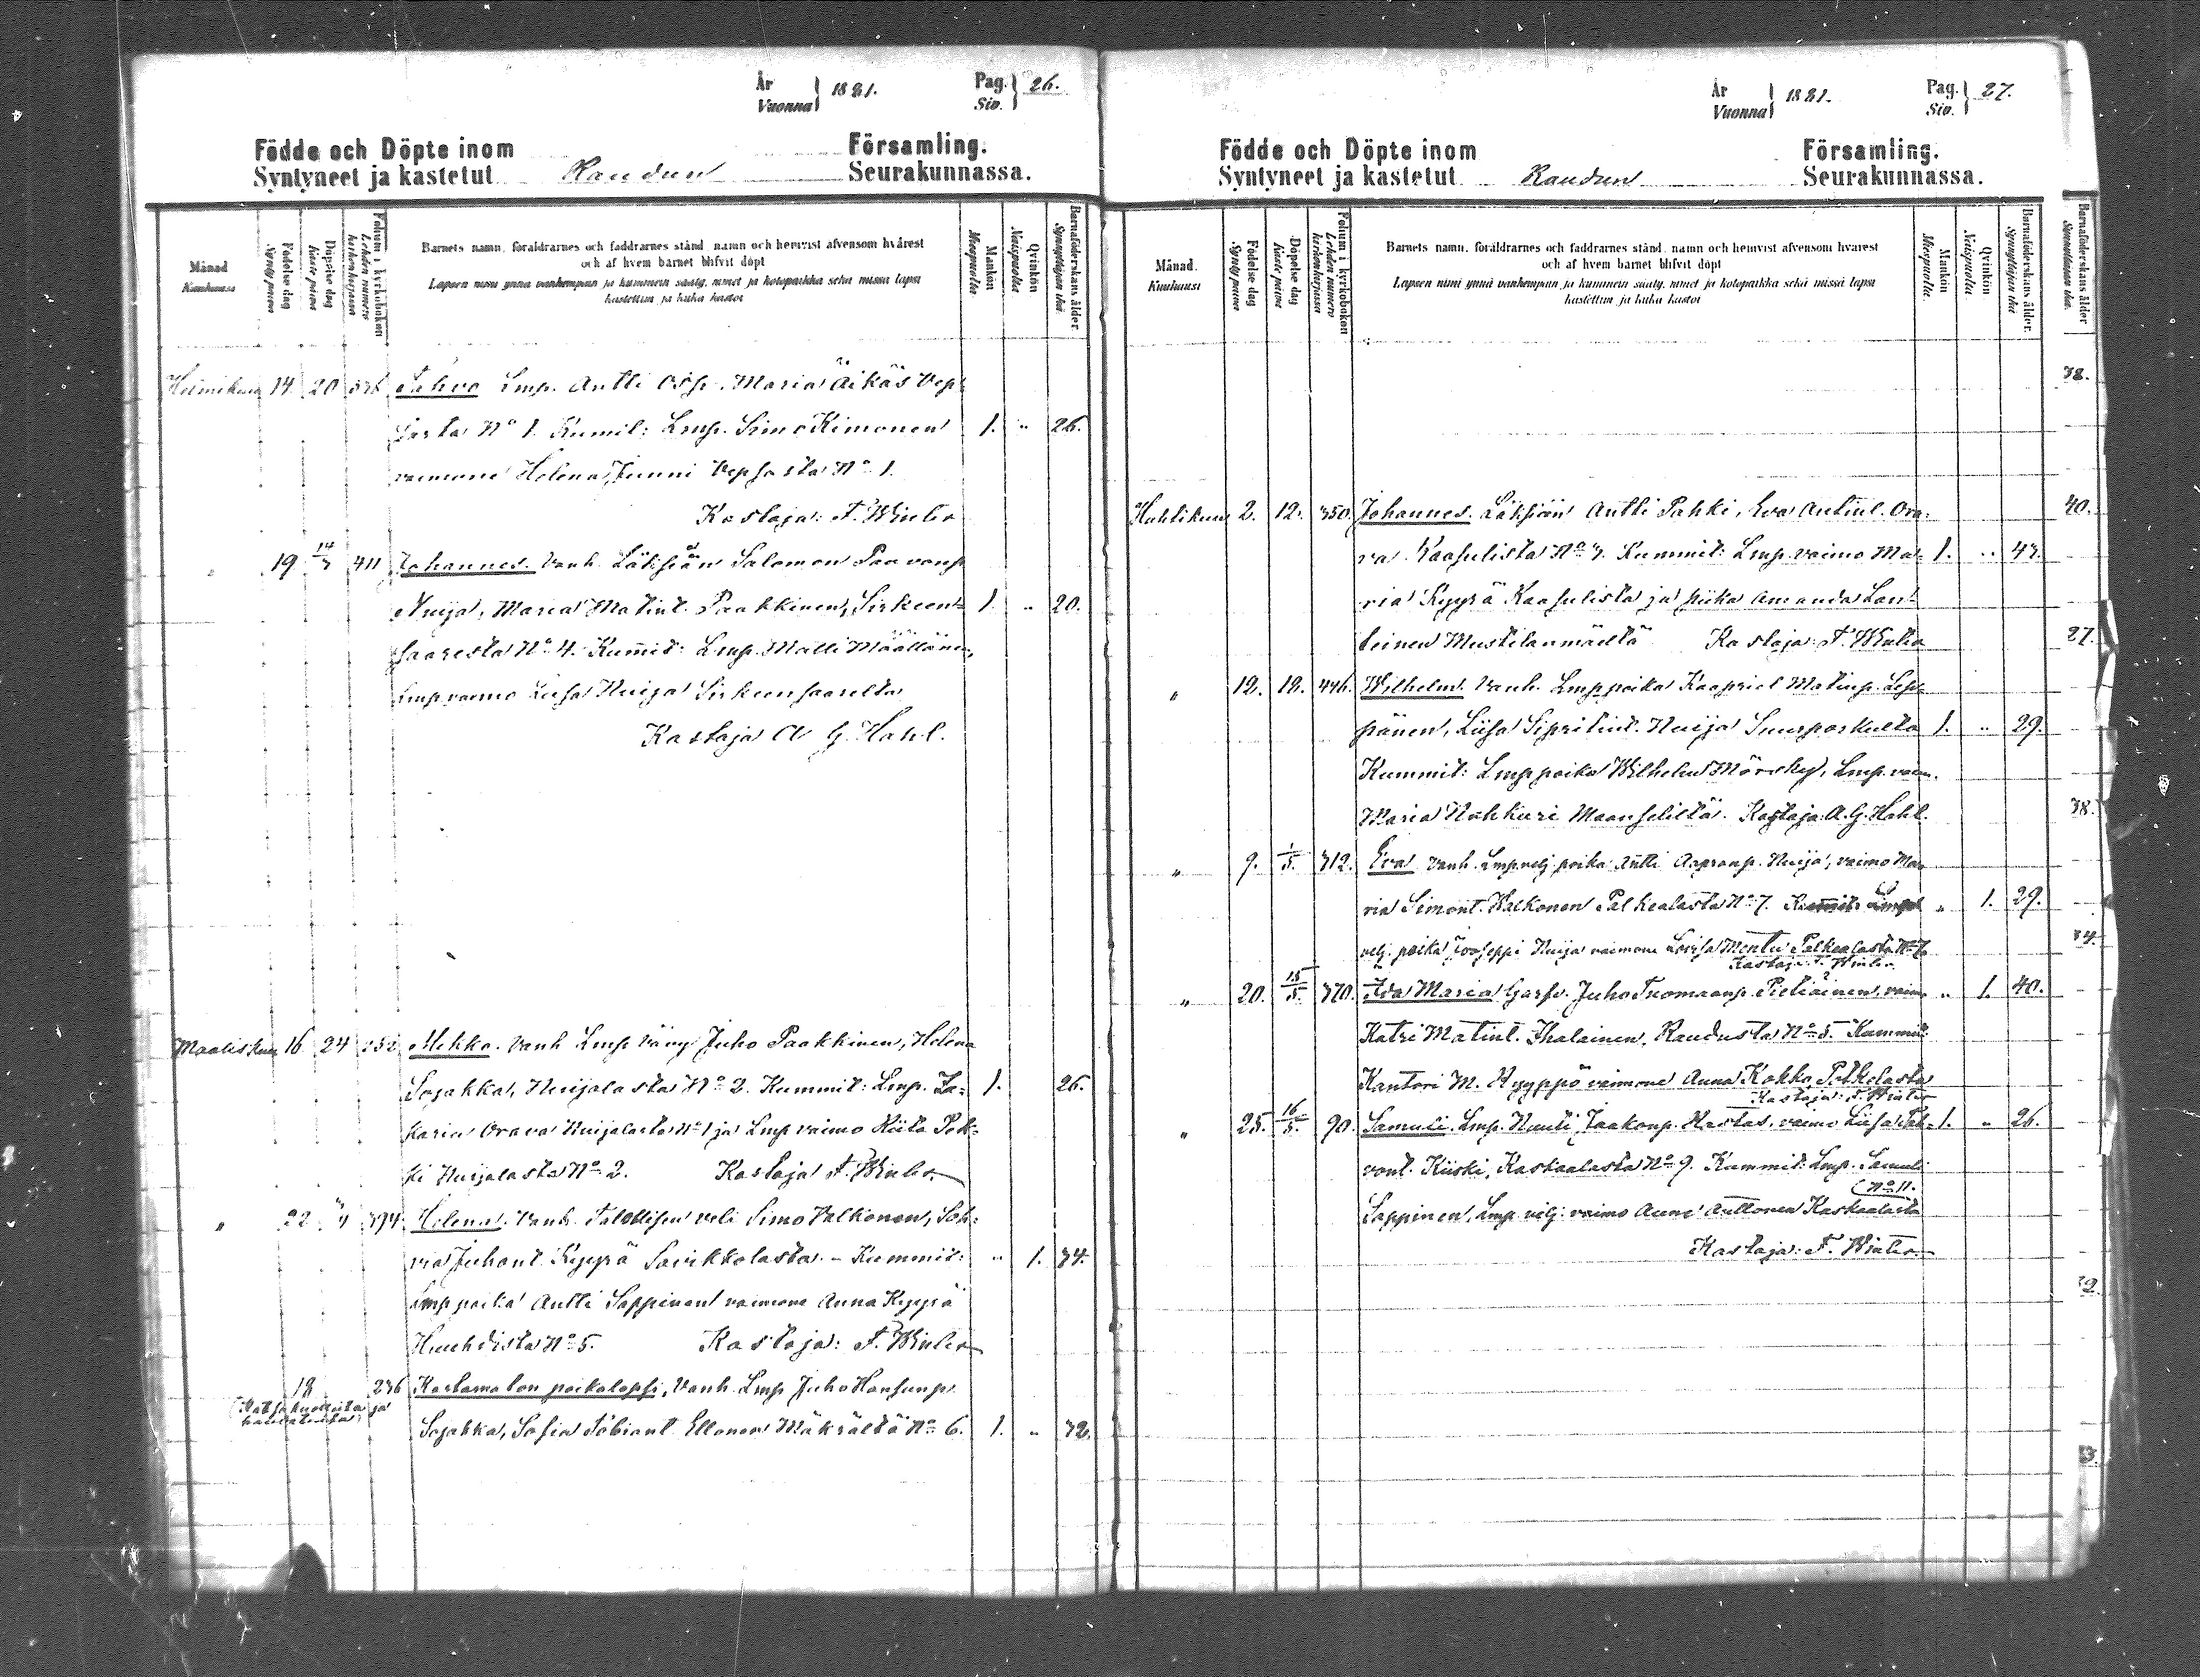 År
Vuonna 1881.
Pag.
Siv. 26.
Födde och Döpte inom Församling.
Syntyneet ja kastetut Raudun Seurakunnassa.
Månad
Kuukausi
Födelse dag
Synty päivä
Döpelse dag
Kaste päivä
Folium i kyrkoboken
Lehden numero
kirkonkirjassa
Barnets namn, föräldrarnes och faddrarnes stånd, namn och hemvist äfvensom hvarest
och af hvem barnet blifvit döpt
Lapsen nimi ynnä vanhempain ja kummein sääty, nimet ja kotopaikka sekä missä lapsi
kastettiin ja kuka kastoi
Mankön
Miespuolta
Qvinkön
Naispuolta
Barnaföderskans ålder.
Synnyttäjän ikä.
Helmikuu 14 20 Lmp. Antti Maria Äikäs Vep
sästa No 1. Kumit: Lmp. Simo Kimonen 1. " 26.
vaimone Helena Junni Vepsästa No 1.
Kastaja: F. Winter
" 19 14/3 411 Johannes. Vanh. Läksiän Salomon Paavonp
Nuija, Maria Matint. Paakkinen, Sirkeen- 1. " 20.
saaresta No 4. Kumit: Lmp. Matti Määttänen,
Lmp vaimo Liisa Nuija Sirkeensaarelta
Kastaja A G. Hahl.
Maaliskuu 16 24 252 Mikko. Vanh Lmp Vävy Juho Paakkinen, Helena
Sojakka, Nuijalasta No 2. Kummit: Lmp. Za- 1. 26.
karia Orava Nuijalasta No 1 ja Lmp vaimo Riita
Nuijalasta No 2. Kastaja F. Winter
" 22 394 Helena. Vanh. Talollisen veli Simo Valkonen, Soh-
via Juhont. Kyyrä Savikkolasta. - Kummit: " 1. 34.
Lmp poika Antti Sappinen vaimone Anna Kyyrä
Huuhdista No 5. Kastaja: F. Winter
18 236 Kastamaton poikalapsi, Vanh. Lmp Juho Hansunp.
Sojakka, Sofia Tobiant. Ellonen Mäkrältä No 6. 1. " 32.
År
Vuonna 1881.
Pag.
Siv. 27.
Födde och Döpte inom Församling.
Syntyneet ja kastetut Raudun Seurakunnassa.
Månad.
Kuukausi
Födelse dag
Synty päivä
Döpelse dag
Kaste päivä
Folium i kyrkoboken
Lehden numero
kirkonkirjassa
Barnets namn, föräldrarnes och faddrarnes stånd, namn och hemvist äfvensom hvarest
och af hvem barnet blifvit döpt
Lapsen nimi ynnä vanhempain ja kummein sääty, nimet ja kotopaikka sekä missä lapsi
kastettiin ja kuka kastoi
Mankön
Miespuolta
Qvinkön
Naispuolta
Barnaföderskans ålder.
Synnyttäjän ikä
Huhtikuu 2. 12. 350. Johannes. Läksiän Antti Pahki, Eva Antint. Ora-
va Kaasulista No 3. Kummit: Lmp. vaimo Ma- 1. " 43.
ria Kyyrä Kaasulista ja piika Amanda Lan-
teinen Mustilanmäeltä Kastaja: F. Winter
" 12. 18. 446. Wilhelm. Vanh. Lmp poika Kaapriel Matinp. Lep-
pänen, Liisa Sipritint. Nuija Suurporkulta 1. " 29.
Kummit: Lmp poika Wilhelm Mörsky, Lmp. vaim.
Maria Nahkuri Maanselältä. Kastaja: A. G. Hahl.
" 9. 1/5. 312. Eva Vanh. Lmp velj poika Antti Aapranp. Nuija, vaimo Ma-
ria Simont. Walkonen Palkealasta No 7. " 1. 29.
velj. poika Jooseppi Nuija vaimone Lovisa Montu Palkealasta No 7.
Kastaja: F. Winter
" 20. 15/5. 370. Ida Maria Juho Tuomaanp. Pietiäinen, vaim. " 1. 40.
Katri Matint. Ihalainen, Raudusta No 5. Kummit:
Kantori M. Hyyppö vaimone Anna Kokko Palkealasta
Kastaja: F. Winter
" 25. 16/5. 90. Samuli. Lmp. Nuuti Jaakonp. Hastas, vaimo Liisa Paa- 1. " 26.
vont. Kiiski, Kaskaalasta No 9. Kummit: Lmp. Samuli
Sappinen, Lmp velj: vaimo Anna Anttonen Kaskaalasta (No 11.
Kastaja: F. Winter
Barnaföderskans ålder
Synnyttäjän ikä.
38.
40.
27.
38.
34.